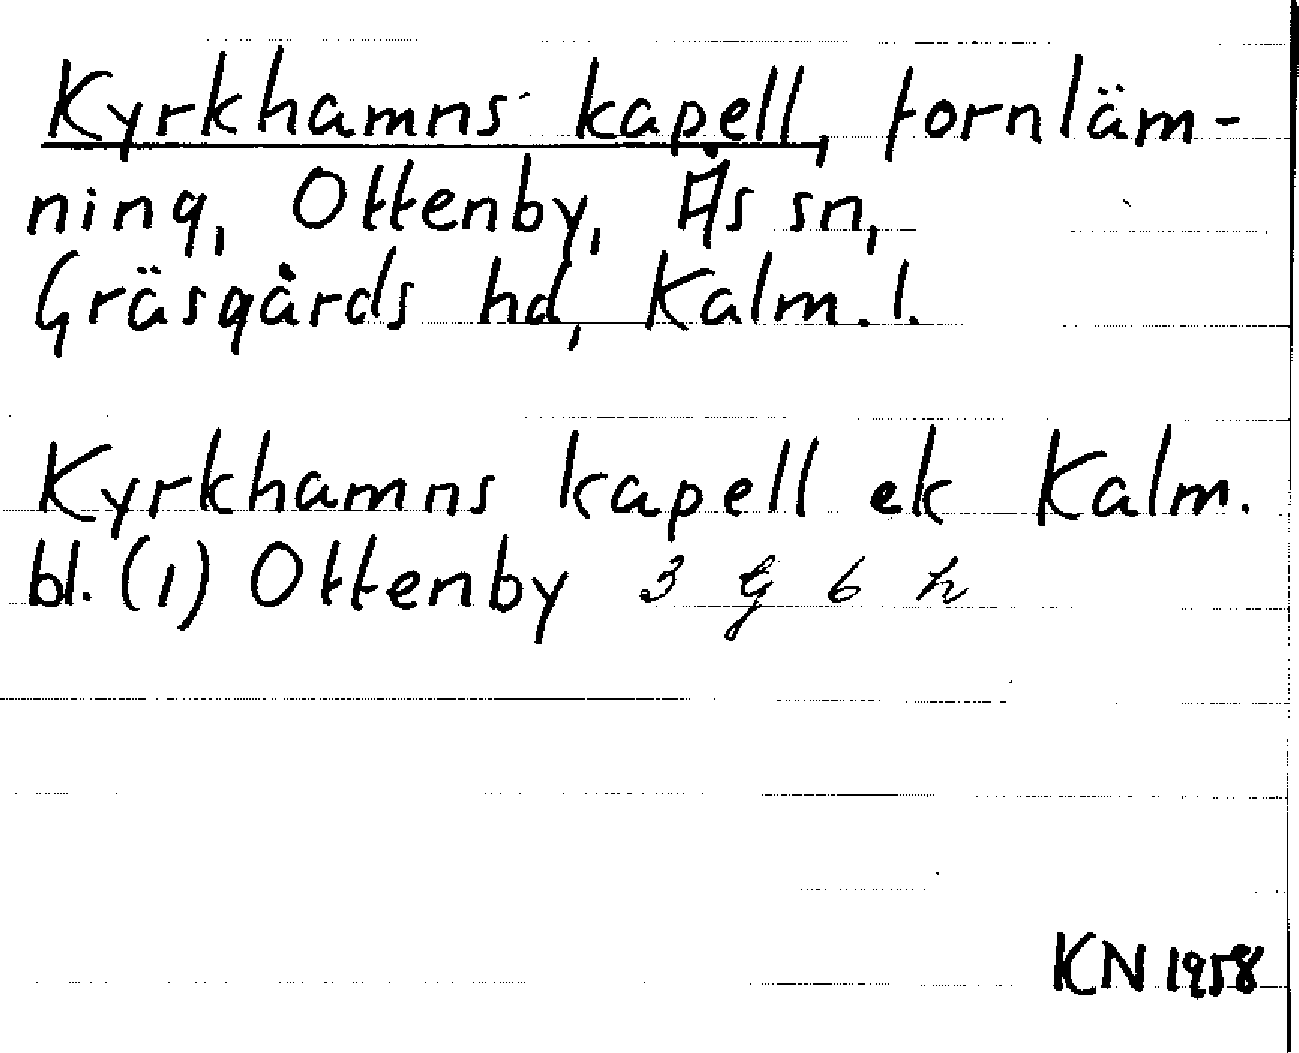 Kyrkhamns kapell, fornläm-
ning, Ottenby, Ås sn,
Gräsgårds hd, Kalm. l.
Kyrkhamns kapell ek Kalm.
bl. (1) Ottenby 3 G 6 h
KN 1958